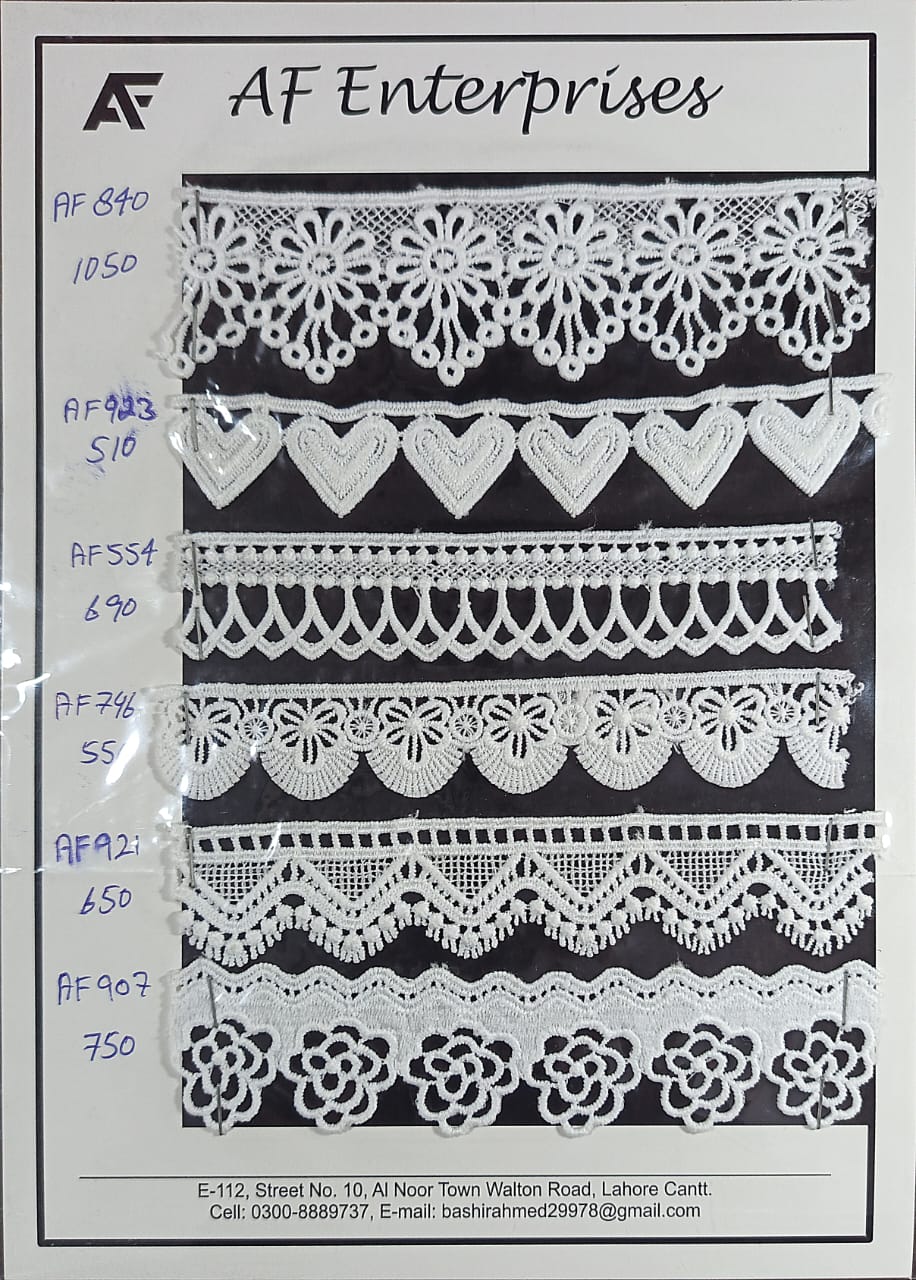 AF
AF Enterprises
AF 840
1050
AF923
510
AF554
690
AF746
AF921
650
AF907
750
E-112, Street No. 10, Al Noor Town Walton Road, Lahore Cantt.
Cell: 0300-8889737, E-mail: bashirahmed29978@gmail.com